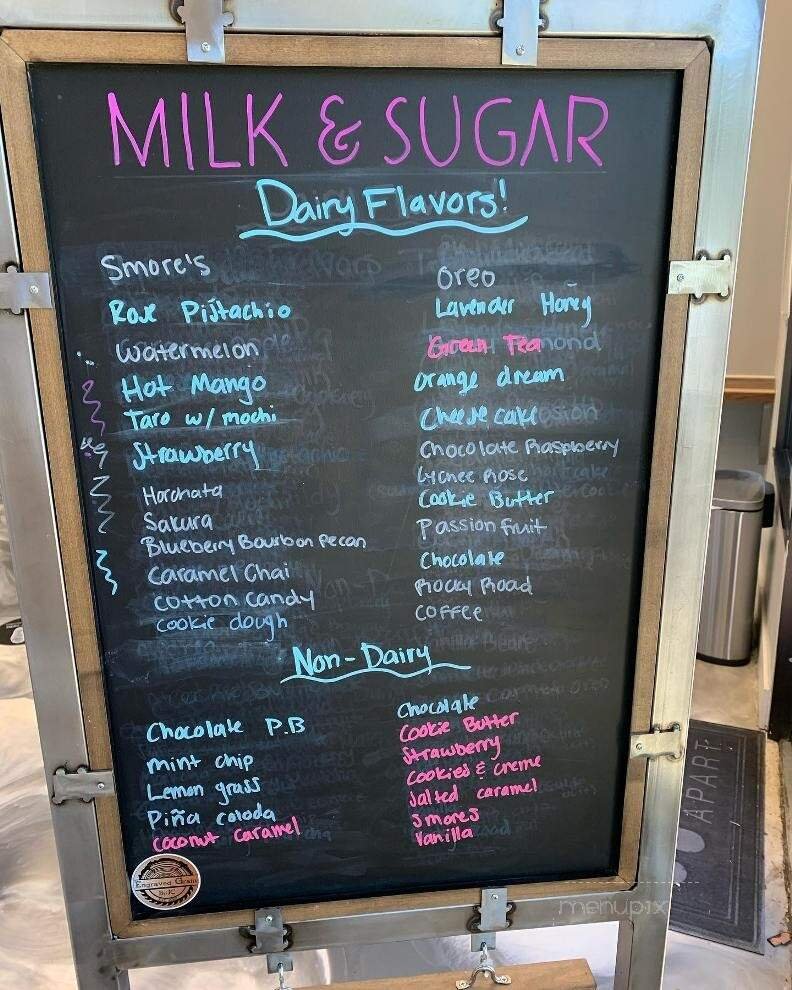 MILK & SUGAR
Dairy Flavors!
Smore's
Rose Pistachio
Watermelon
Hot Mango
Taro w/ mochi
Strawberry
Horchata
Sakura
Blueberry Bourbon Pecan
Caramel Chai
Cotton Candy
Cookie dough
Oreo
Lavender Honey
Green Tea
Orange dream
Cheesecake
Chocolate Raspberry
Lychee Rose
Cookie Butter
Passion fruit
Chocolate
Rocky Road
COFFEE
Non-Dairy
Chocolate P.B
mint chip
Lemon grass
Piña coloda
Coconut Caramel
Chocolate
Cookie Butter
Strawberry
Cookies & Creme
Salted caramel
Smores
Vanilla
Engraved Grain
By JC
APART
menupix